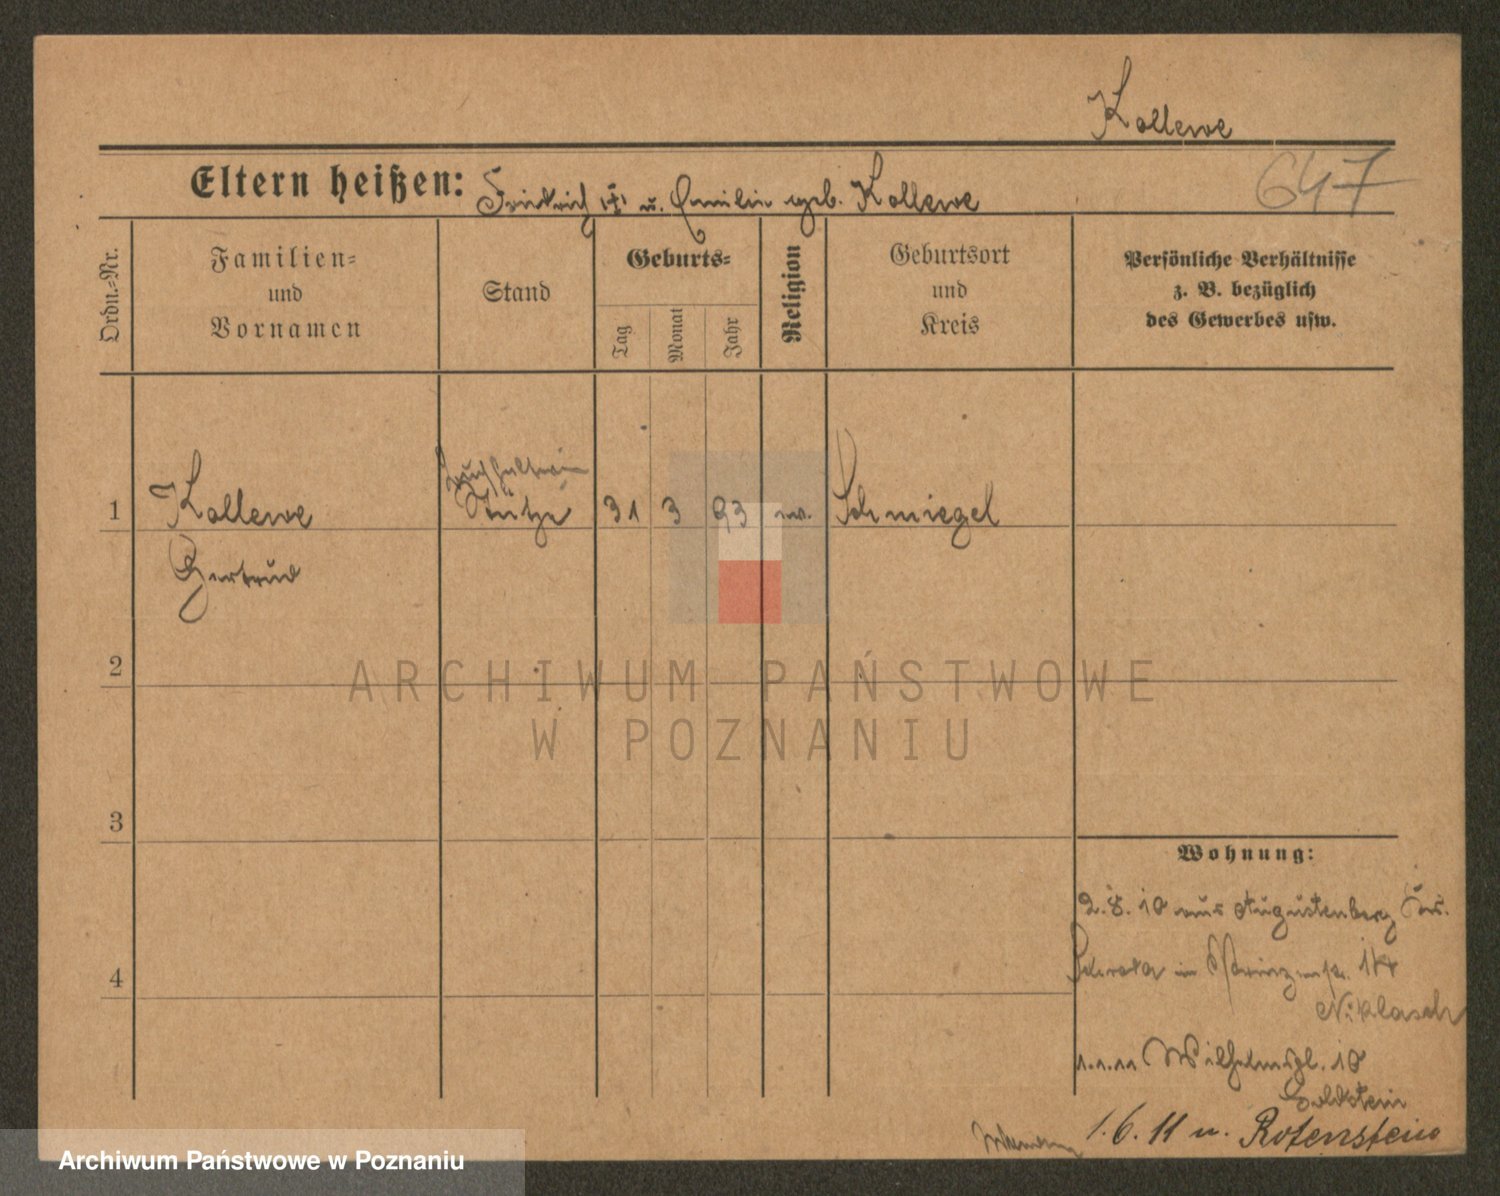 Kollewe
647
Eltern heißen: Friedrich u. Emilie geb. Kollewe
Ordn.-Nr.
Familien- und Vornamen
Stand
Geburts-
Tag
Monat
Jahr
Religion
Geburtsort und Kreis
Persönliche Verhältnisse z. B. bezüglich des Gewerbes usw.
Buchhalterin
1 Kollewe Stütze 31 3 93 ev. Schmiegel
Gertrud
2
3
4
Wohnung:
2.8.10 aus Augustenberg Krs.
in 14
Niklasch
1.1.11 Wilhelmspl. 18
Goldstein
1.6.11 n. Rotenstein
ARCHIWUM PAŃSTWOWE
W POZNANIU
Archiwum Państwowe w Poznaniu